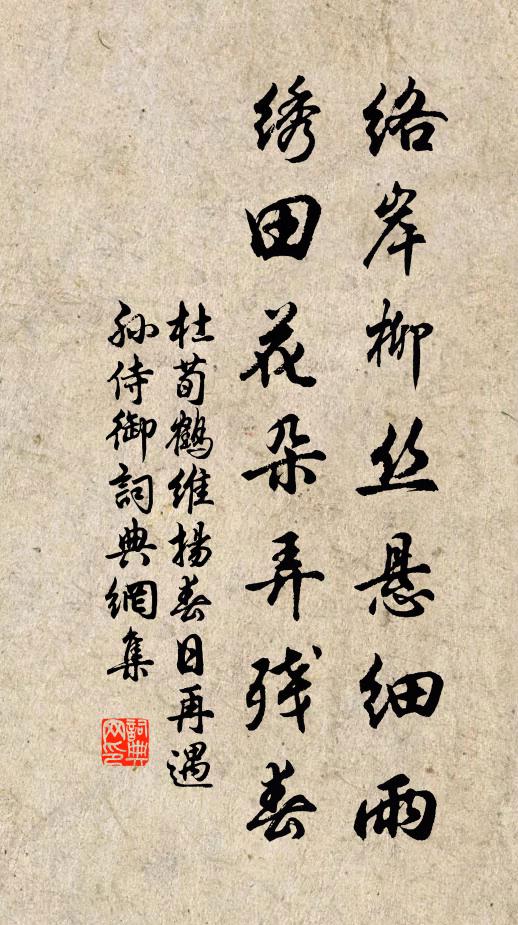 络岸柳丝悬细雨
绣田花朵弄残春
杜荀鹤维扬春日再遇
孙侍御詞典網集
詞典网印